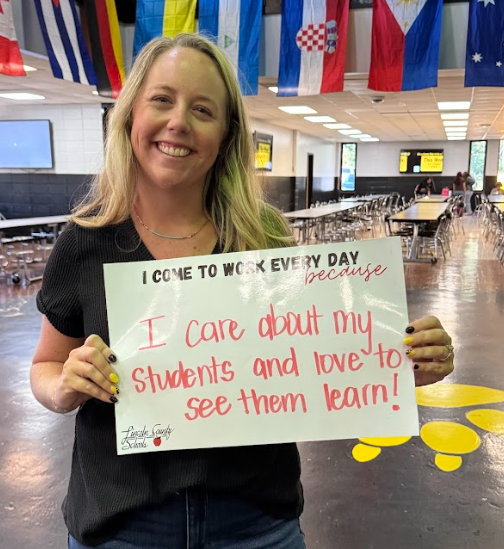 I COME TO WORK EVERY DAY
because
I care about my
students and love to
see them learn!
Lincoln County
Schools